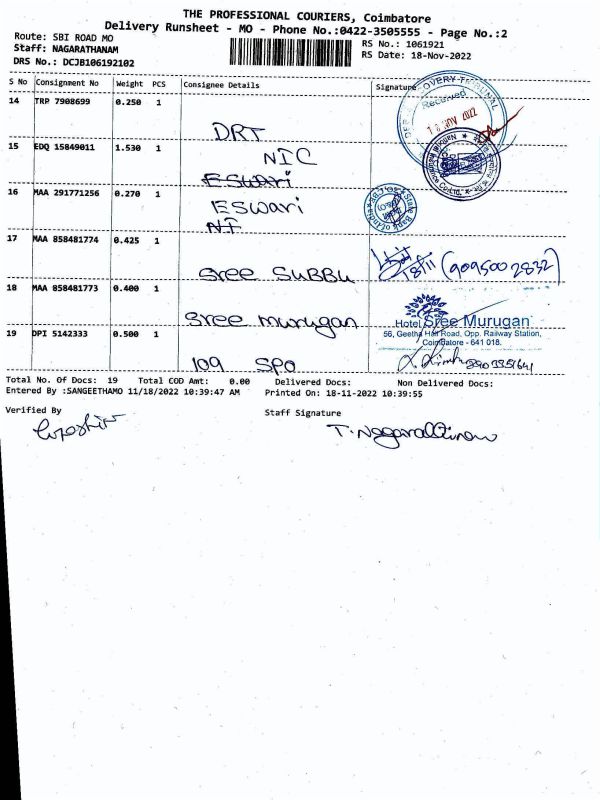 THE PROFESSIONAL COURIERS, Coimbatore
Delivery Runsheet - MO - Phone No.:0422-3505555 - Page No.:2
Route: SBI ROAD MO
RS No.: 1061921
Staff: NAGARATHANAM
RS Date: 18-Nov-2022
DRS No.: DCJB106192102
S No Consignment No Weight PCS Consignee Details Signature
14 TRP 7908699 0.250 1
DRT
Received
18 NOV 2022
15 EDQ 15849011 1.530 1
NIC
Eswari
16 MAA 291771256 0.270 1
Eswari
NI
State Bank of India
17 MAA 858481774 0.425 1
Sree SUBBU
18/11 (9095002832)
18 MAA 858481773 0.400 1
Sree murugan
Hotel Sree Murugan
56, Geetha Hall Road, Opp. Railway Station,
Coimbatore - 641 018.
19 DPI 5142333 0.500 1
109 SPO
Total No. Of Docs: 19 Total COD Amt: 0.00 Delivered Docs: Non Delivered Docs:
Entered By :SANGEETHAMO 11/18/2022 10:39:47 AM Printed On: 18-11-2022 10:39:55
Verified By
Staff Signature